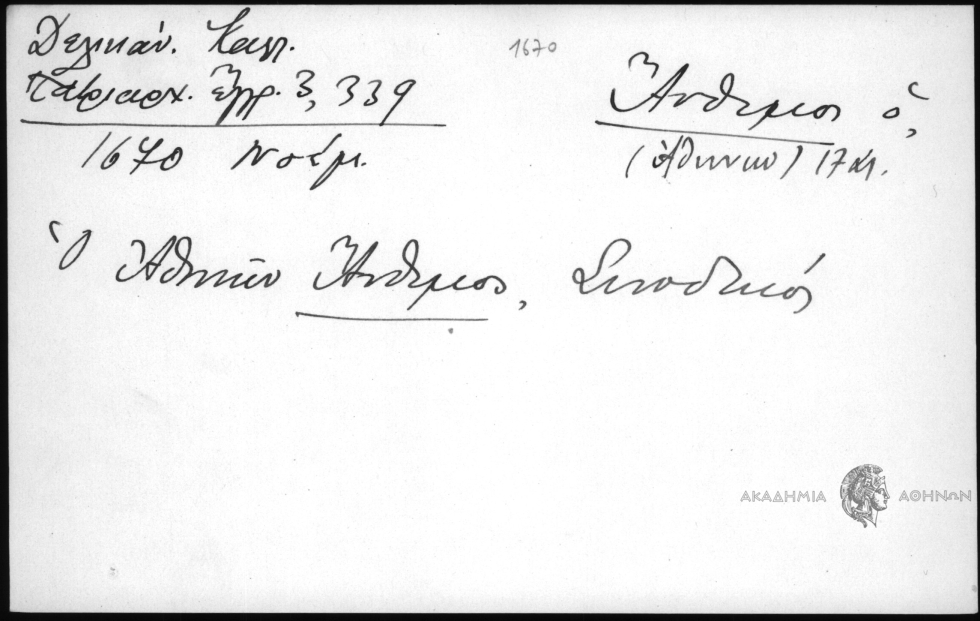 Δελικάν. Καλλ.
Πατριαρχ. Ἔγγρ. 3, 339
1670 Νοέμ.
1670
Ἄνθιμος ὁ,
(Ἀθηνῶν)
ὁ Ἀθηνῶν Ἄνθιμος, Συνοδικός
ΑΚΑΔΗΜΙΑ ΑΘΗΝΩΝ